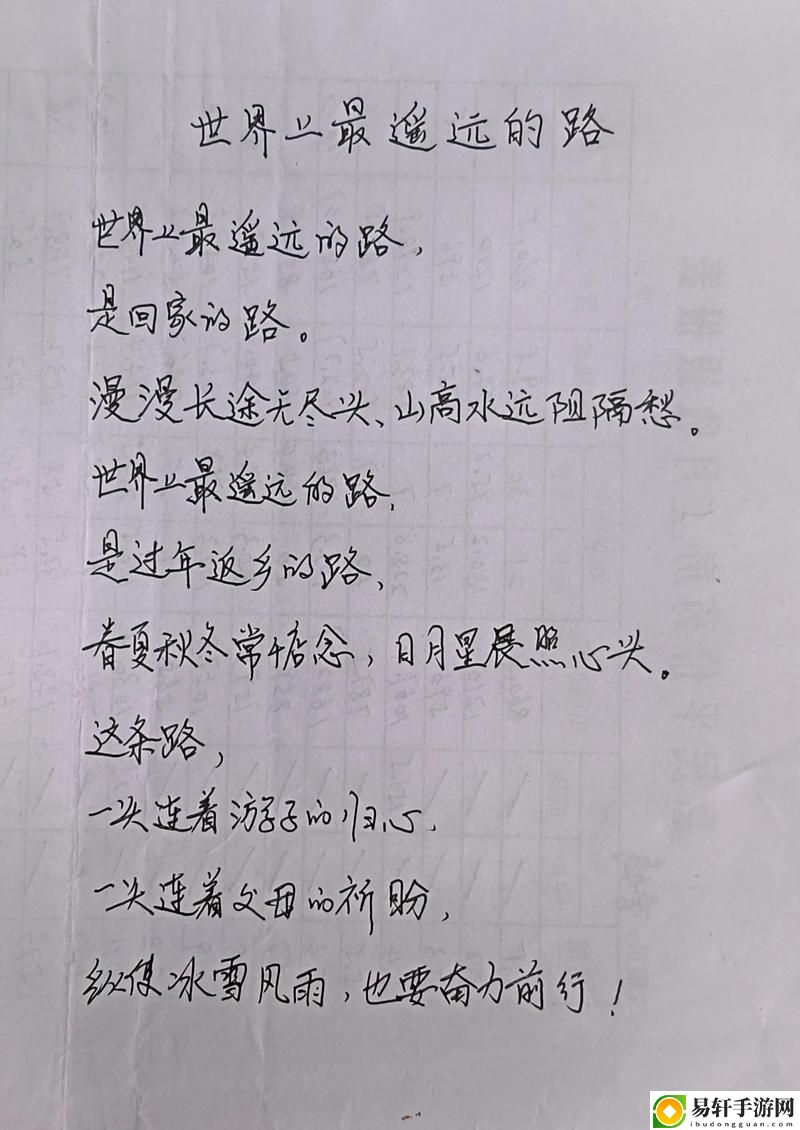 世界上最遥远的路
世界上最遥远的路，
是回家的路。
漫漫长途无尽头、山高水远阻隔愁。
世界上最遥远的路，
是过年返乡的路，
春夏秋冬常惦念，日月星辰照心头。
这条路，
一头连着游子的归心，
一头连着父母的祈盼，
纵使冰雪风雨，也要奋力前行！
易轩手游网
ibudongguan.com